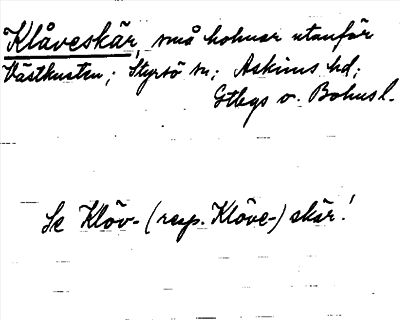 Klåveskär, små holmar utanför
Västkusten; Styrsö sn; Askims hd;
Gtbgs o. Bohusl.
Se Klöv- (resp. Klöve-) skär!